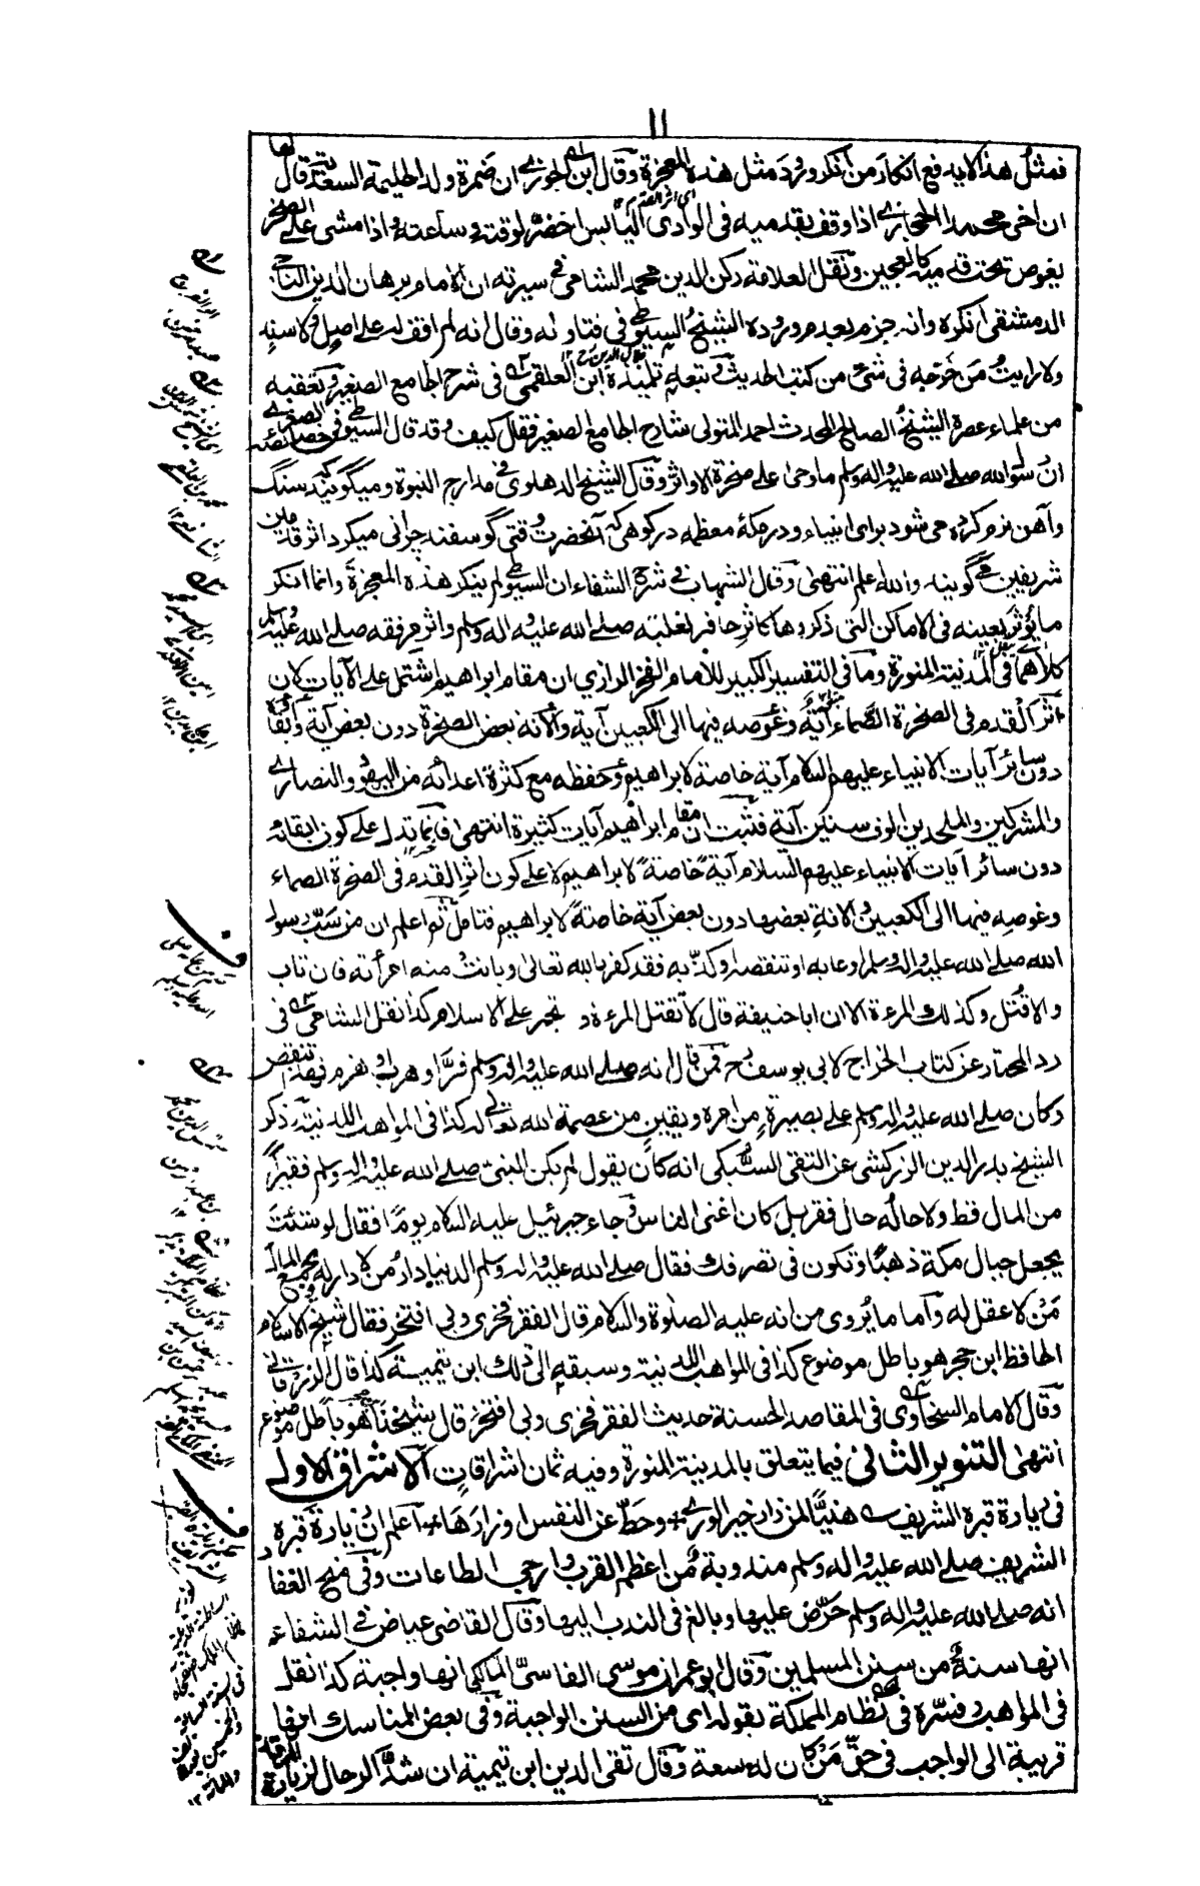 ١١
فمثل هذا لا يدفع انكار من انكر ورد مثل هذه المعجزة وقال ابن الجوزي ان ضمرة ولد الحليمة السعدية قال لها
ان اخي محمد الحجازي اذا وقف بقدميه في الوادي اليابس اخضر لوقته وساعته واذا مشى على الصخر
يغوص تحت قدميه كالعجين ونقل العلامة ركن الدين محمد الشامي في سيرته ان الامام برهان الدين الناجي
الدمشقي انكره وانه جزم بعدم وروده الشيخ السيوطي في فتاوئه وقال انه لم اقف له على اصل ولا سند
ولا رايت من خرجه في شئ من كتب الحديث وتبعه تلميذه ابن العلقمي في شرح الجامع الصغير وتعقبه
من علماء عصره الشيخ الصالح المحدث احمد المتولى شارح الجامع الصغير فقال كيف وقد قال السيوطي في خصائصه الصغرى
ان رسول الله صلى الله عليه واله وسلم ما وطى على صخرة الا واثر وقال الشيخ الدهلوي في مدارج النبوة وميگويند كه سنگ
وآهن نرم كرده مى شود براى انبياء ودر مكۀ معظمه در كوهى كه آنحضرت وقتى گوسفند چرانى ميكرد اثر قدمين
شريفين مى گويند والله اعلم انتهى وقال الشهاب في شرح الشفاء ان السيوطي لم ينكر هذه المعجزة وانما انكر
ما يؤثر بعينه في الاماكن التي ذكروها كاثر حافر لبغلته صلى الله عليه واله وسلم واثر مرفقه صلى الله عليه وسلم
كلاهما في المدينة المنورة وما في التفسير الكبير للامام الفخر الرازي ان مقام ابراهيم اشتمل على الآيات لان
اثر القدم في الصخرة الصماء آية وغوصه فيها الى الكعبين آية وألانة بعض الصخرة دون بعض آية وابقاءه
دون سائر آيات الانبياء عليهم السلام آية خاصة لابراهيم وحفظه مع كثرة اعدائه من اليهود والنصارى
والمشركين والملحدين الوف سنين آية فثبت ان مقام ابراهيم آيات كثيرة انتهى فانما تدل على كون ابقائه
دون سائر آيات الانبياء عليهم السلام آية خاصة لابراهيم لا على كون اثر القدم في الصخرة الصماء
وغوصه فيها الى الكعبين والانة بعضها دون بعض آية خاصة لابراهيم فتامل ثم اعلم ان من سب رسول
الله صلى الله عليه واله وسلم او عابه او تنقصه او كذبه فقد كفر بالله تعالى وبانت منه امرأته فان تاب
والا قتل وكذلك المرءة الا ان ابا حنيفة قال لا تقتل المرءة وتجبر على الاسلام كذا نقل الشامي في
رد المحتار عن كتاب الخراج لابي يوسف رح فمن قال انه صلى الله عليه واله وسلم فر او هرب او هزم فقد تنقصه
وكان صلى الله عليه واله وسلم على بصيرة من امره ويقين من عصمة الله تعالى له كذا في المواهب اللدنية ذكر
الشيخ بدر الدين الزركشي عن التقي السبكي انه كان يقول لم يكن النبي صلى الله عليه واله وسلم فقيرا
من المال قط ولا حاله حال فقر بل كان اغنى الناس وجاء جبرئيل عليه السلام يوما فقال لو شئت
يجعل جبال مكة ذهبا وتكون في تصرفك فقال صلى الله عليه واله وسلم الدنيا دار من لا دار له ويجمع المال
من لا عقل له وأما ما يروى من انه عليه الصلوة والسلام قال الفقر فخرى وبى افتخر فقال شيخ الاسلام
الحافظ ابن حجر هو باطل موضوع كذا في المواهب اللدنية وسبقه الى ذلك ابن تيمية كذا قال الزرقاني
وقال الامام السخاوى في المقاصد الحسنة حديث الفقر فخرى وبى افتخر قال شيخنا هو باطل موضوع
انتهى التنوير الثاني فيما يتعلق بالمدينة المنورة وفيه ثمان اشراقات الاشراق الاول
في زيارة قبره الشريف هنيئا لمن زار خير الورى وحط عن النفس اوزارها اعلم ان زيارة قبره
الشريف صلى الله عليه واله وسلم مندوبة من اعظم القرب وارجى الطاعات وفي منح الغفار
انه صلى الله عليه واله وسلم حرض عليها وبالغ في الندب اليها وقال القاضي عياض في الشفاء
انها سنة من سنن المسلمين وقال ابو عمران موسى الفاسي المالكي انها واجبة كذا نقل
في المواهب وفسره في نظام المملكة بقوله اى من السنن الواجبة وفي بعض المناسك انها
قريبة الى الواجب في حق من كان له سعة وقال تقي الدين ابن تيمية ان شد الرحال لزيارة